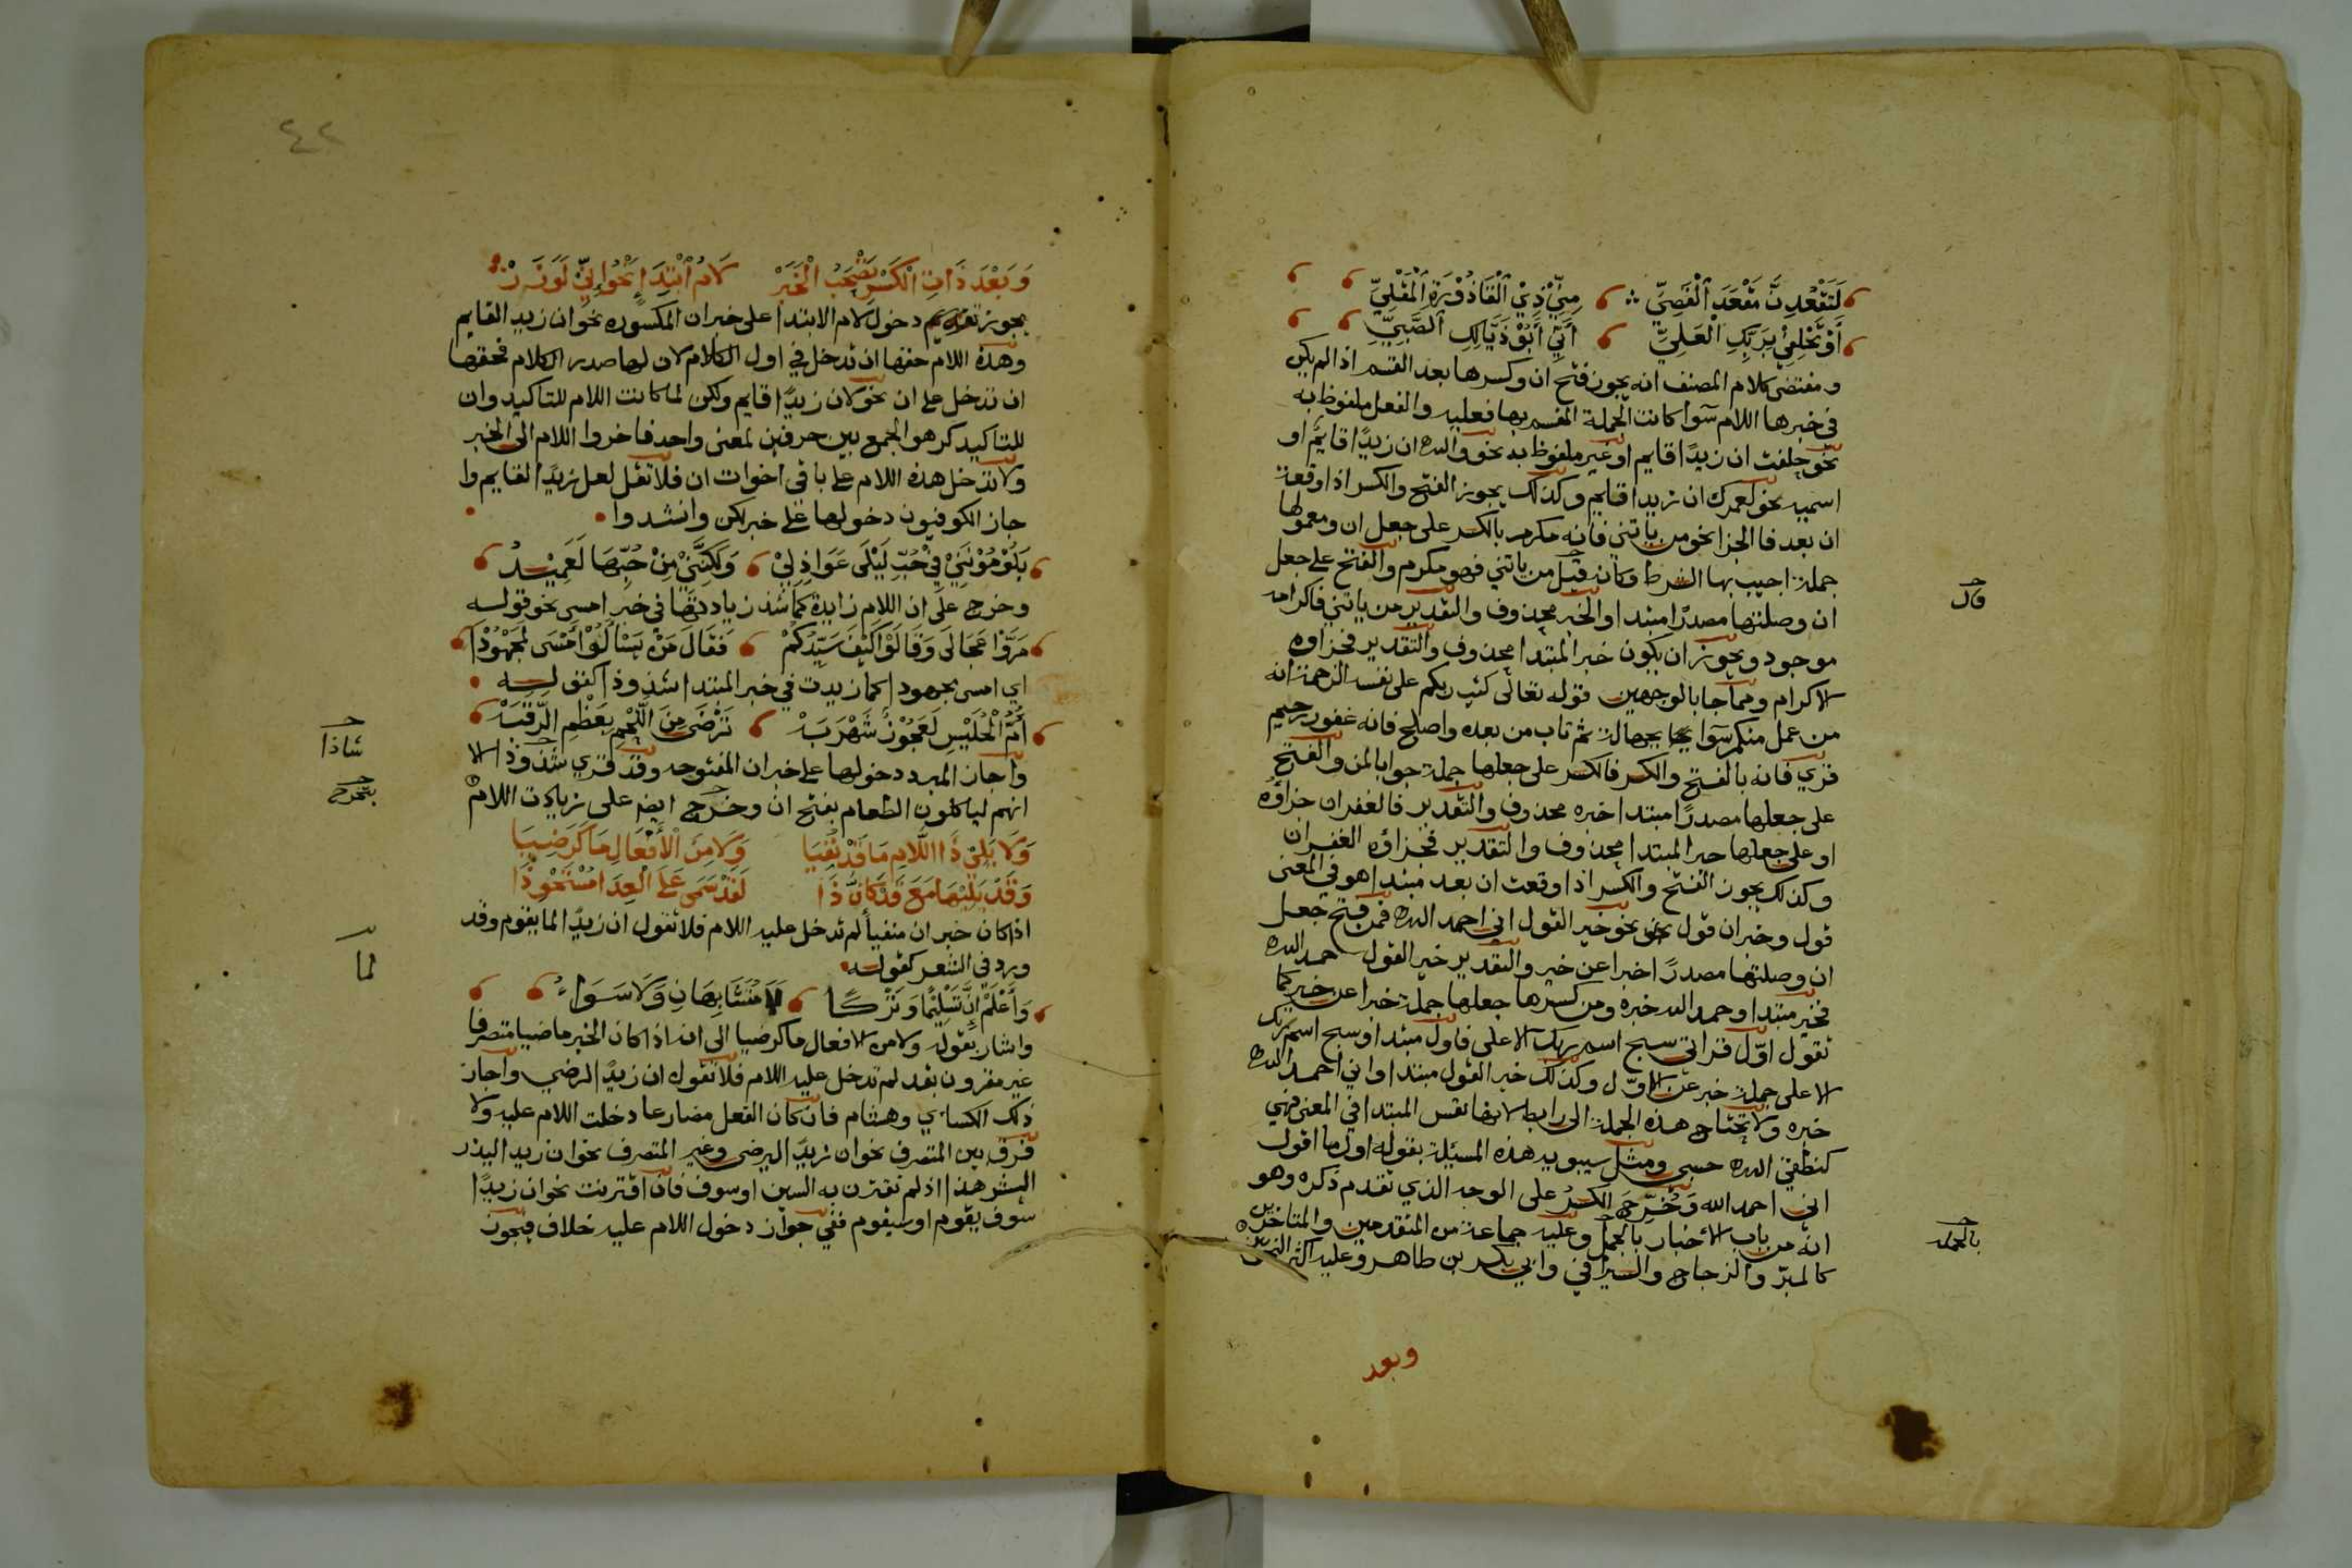 لَتَقْعُدِنَّ مَقْعَدَ ٱلْقَصِيِّ مِنِّيْ ذِيْ ٱلْقَاذُوْرَةِ ٱلْمَقْلِيِّ
أَوْ تَحْلِفِيْ بِرَبِّكِ الْعَلِيِّ أَنِّيْ أَبُوْ ذَيَّالِكِ ٱلصَّبِيِّ
ومقتضى كلام المصنف انه يجوز فتح ان وكسرها بعد القسم اذا لم يكن
في خبرها اللام سوا كانت الجملة المقسم بها فعليه والفعل ملفوظ به
نحو حلفت ان زيدًا قايم او غير ملفوظ به نحو والله ان زيدًا قايمٌ او
اسميه نحو لعمرك ان زيدا قايم وكذلك يجوز الفتح والكسر اذا وقعت
ان بعد فا الجزا نحو من ياتني فانه مكرم بالكسر على جعل ان ومعمولها
جملة اجيب بها الشرط وكانه قيل من ياتني فهو مكرم والفتح على جعل
قال
ان وصلتها مصدرًا مبتدا والخبر محذوف والتقدير من ياتني فاكرامه
موجود ويجوز ان يكون خبر المبتدا محذوف والتقدير فجزاوه
الاكرام ومما جا بالوجهين قوله تعالى كتب ربكم على نفسه الرحمة انه
من عمل منكم سوا بجهالة ثم تاب من بعده واصلح فانه غفور رحيم
قري فانه بالفتح والكسر فالكسر على جعلها جملة جوابا لمن والفتح
على جعلها مصدرًا مبتدا خبره محذوف والتقدير فالغفران جزاؤه
او على جعلها خبر المبتدا محذوف والتقدير فجزاؤه الغفران
وكذلك يجوز الفتح والكسر اذا وقعت ان بعد مبتدا هو في المعنى
قول وخبر ان قول نحو خير القول اني احمد الله فمن فتح جعل
ان وصلتها مصدرًا خبرا عن خير والتقدير خير القول حمد الله
فخير مبتدا وحمد الله خبره ومن كسرها جعلها جملة خبرا عن خير كما
تقول اوّل قراتي سبح اسم ربك الاعلى فاول مبتدا وسبح اسم ربك
الاعلى جملة خبر عن الاوّل وكذلك خير القول مبتدا واني احمد الله
خبره ولا تحتاج هذه الجملة الى رابط لانها نفس المبتدا في المعنى فهي
كنطقي الله حسبي ومثل سيبويه هذه المسئلة بقوله اول ما اقول
اني احمد الله وَخُرِّجَ الكسر على الوجه الذي تقدم ذكره وهو
انه من باب الاخبار بالجمل وعليه جماعة من المتقدمين والمتاخرين
بالجمله
كالمبرّ والزجاج والسيرافي وابي بكر بن طاهر وعليه اكثر
وبعد
٤٢
وَبَعْدَ ذَاتِ الْكَسْرِ تَصْحَبُ الْخَبَرْ لَامُ ابْتِدَاءٍ نَحْوُ إِنِّيْ لَوَزَرْ
يجوز دخول لام الابتدا على خبر ان المكسوره نحو ان زيد القايم
وهذه اللام حقها ان تدخل في اول الكلام لان لها صدر الكلام فحقها
ان تدخل على ان نحو لان زيدًا قايم ولكن لما كانت اللام للتاكيد وان
للتاكيد كرهوا الجمع بين حرفين لمعنى واحد فاخروا اللام الى الخبر
ولا تدخل هذه اللام على باقي اخوات ان فلا تقل لعل زيدًا لقايم وا
جاز الكوفيون دخولها على خبر لكن وانشدوا
يَلُوْمُوْنَنِيْ فِيْ حُبِّ لَيْلَى عَوَاذِلِيْ وَلَكِنَّنِيْ مِنْ حُبِّهَا لَعَمِيْدُ
وخرج على ان اللام زايدة كما شذ زيادتها في خبر امسى نحو قوله
مَرَّوْا عَجَالَى وَقَالُوْا كَيْفَ سَيِّدُكُمْ فَقَالَ مَنْ يَسْأَلُوْا أَمْسَى لَمَجْهُوْدَا
اي امسى مجهودا كما زيدت في خبر المبتدا شذوذا كقوله
أُمُّ الْحُلَيْسِ لَعَجُوْزٌ شَهْرَبَهْ تَرْضَى مِنَ اللَّحْمِ بِعَظْمِ الرَّقَبَهْ
واجاز المبرد دخولها على خبر ان المفتوحه وقد قري شذوذا الا
شاذا
انهم لياكلون الطعام بفتح ان وخرج ايضا على زيادت اللام
يتخرج
وَلَا يَلِيْ ذَا اللَّامِ مَا قَدْ نُفِيَا وَلَا مِنَ الْأَفْعَالِ مَا كَرَضِيَا
وَقَدْ يَلِيْهَا مَعَ قَدْ كَإِنَّ ذَا لَقَدْ سَمَى عَلَى الْعِدَا مُسْتَحْوِذَا
اذا كان خبر ان منفيا لم تدخل عليه اللام فلا تقول ان زيدًا لما يقوم وقد
لما
ورد في الشعر كقوله
وَأَعْلَمُ إِنَّ تَسْلِيْمًا وَتَرْكًا لَا مُتَشَابِهَانِ وَلَا سَوَاءُ
واشار بقوله ولا من الافعال ما كرضيا الى انه اذا كان الخبر ماضيا متصرفا
غير مقرون بقد لم تدخل عليه اللام فلا تقول ان زيدًا لرضي واجاز
ذلك الكساي وهشام فان كان الفعل مضارعا دخلت اللام عليه ولا
فرق بين المتصرف نحو ان زيدًا ليرضى وغير المتصرف نحو ان زيدا ليذر
الشر هذا اذا لم تقترن به السين او سوف فان اقترنت نحو ان زيدًا
سوف يقوم او سيقوم ففي جواز دخول اللام عليه خلاف فيجوز